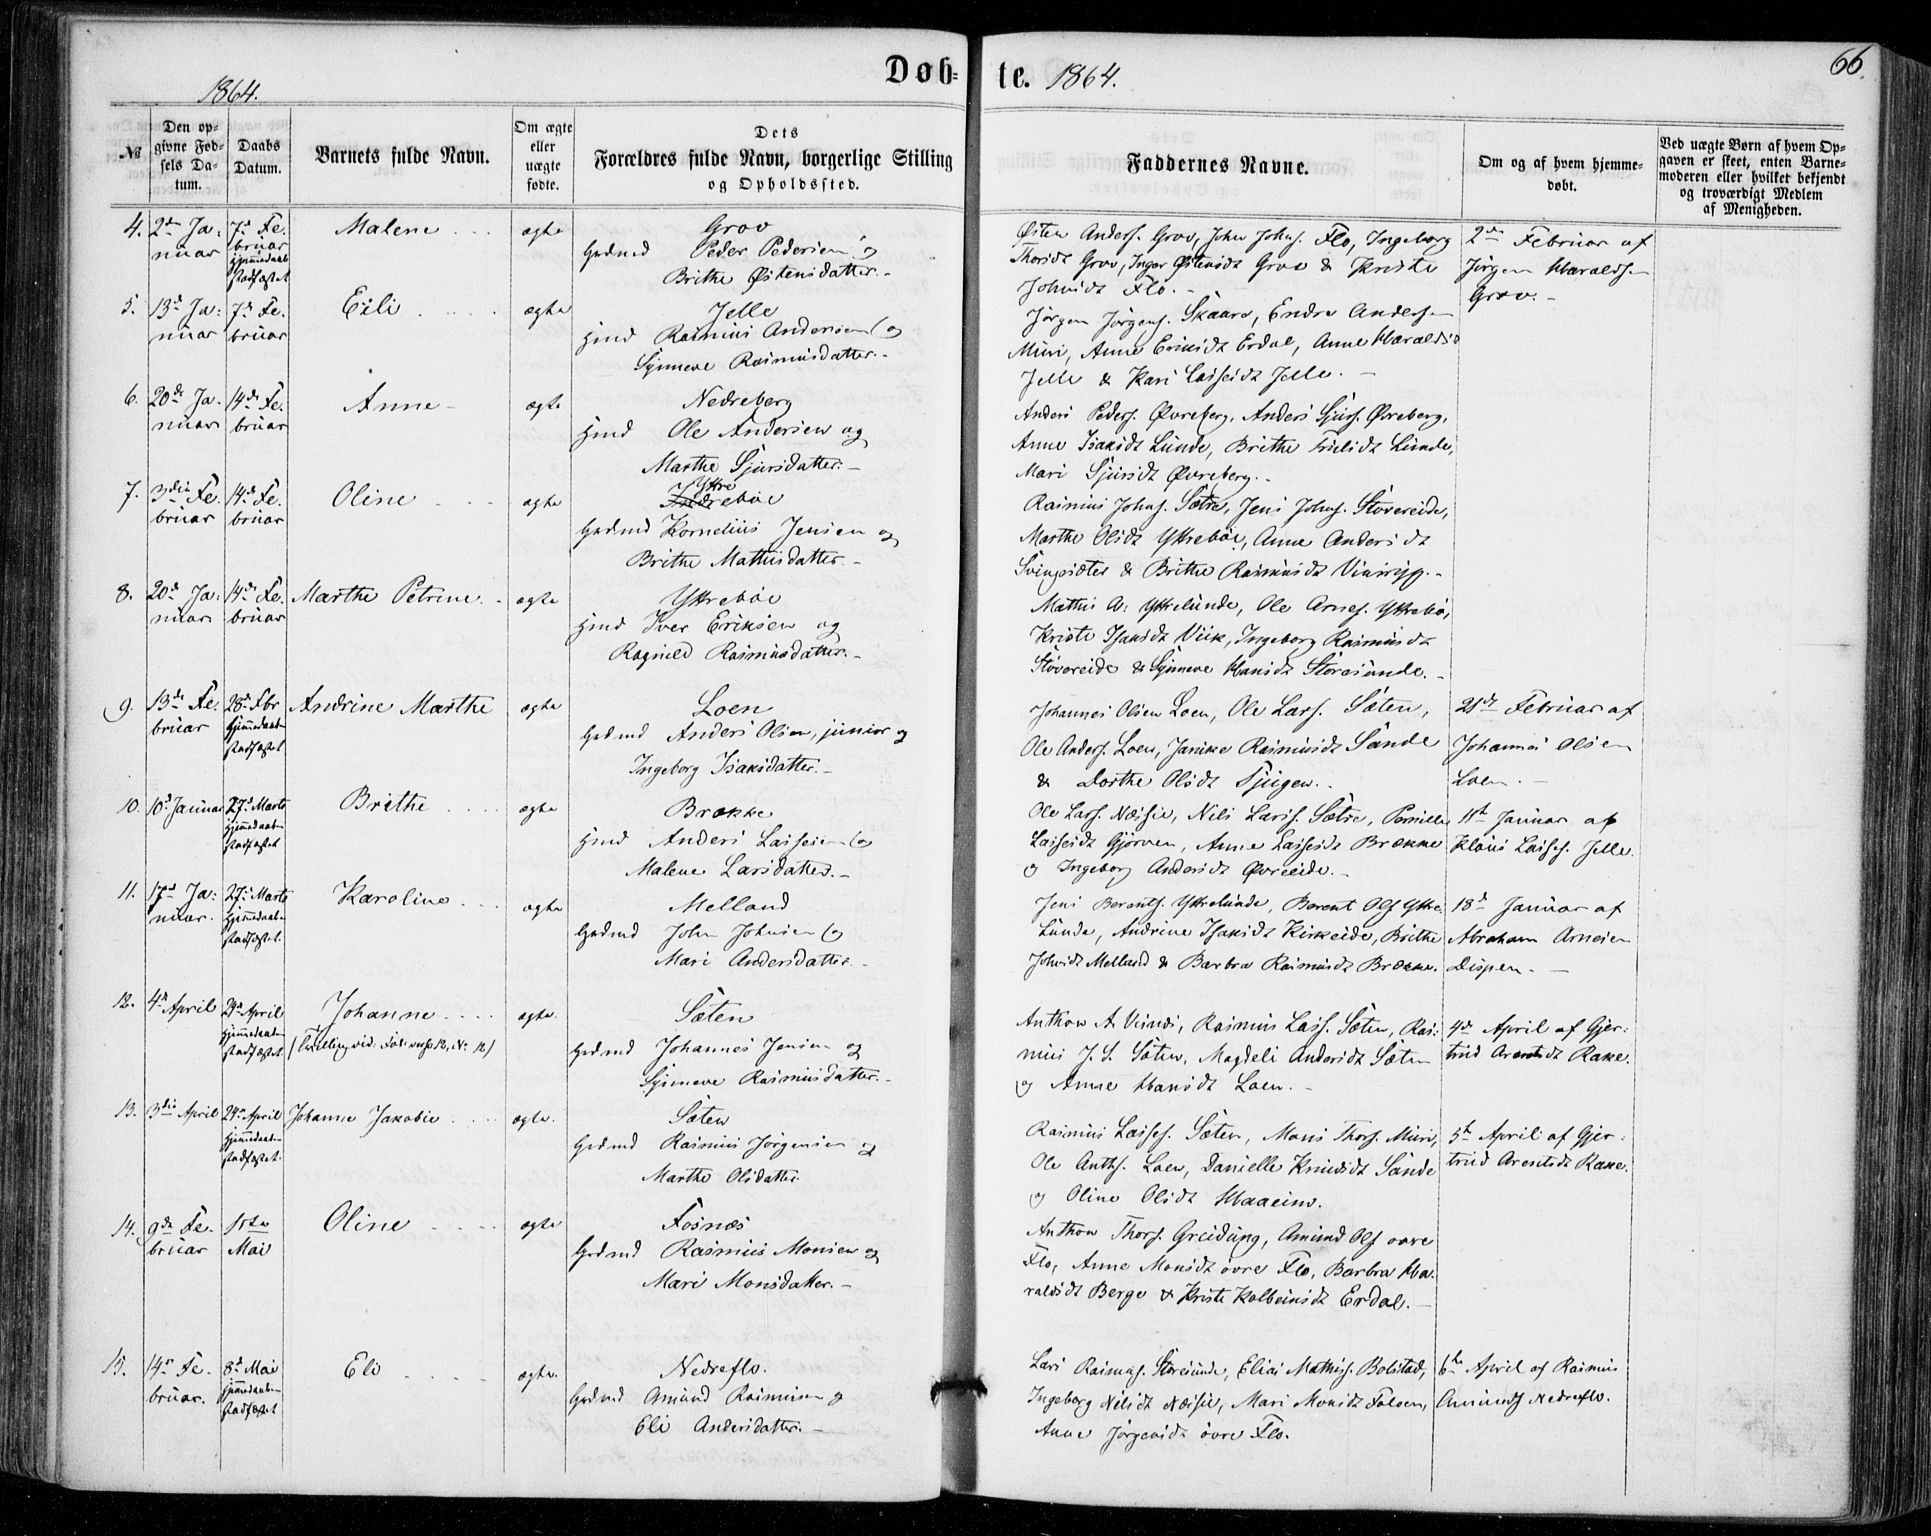 Døb=
te.
1864.
1864.
66.
№
Den op=
givne Fød=
sels Da=
tum.
Daabs
Datum.
Barnets fulde Navn.
Om ægte
eller
uægte
fødte.
Dets
Forældres fulde Navn, borgerlige Stilling
og Opholdssted.
Faddernes Navne.
Om og af hvem hjemme=
døbt.
Ved uægte Børn af hvem Op=
gaven er skeet, enten Barne=
moderen eller hvilket bekjendt
og troværdigt Medlem
af Menigheden.
4.
2den Ja=
nuar
7de Fe.
bruar
Hjemmedaab
stadfæstet
Malene
ægte
Grov
Grdmd Peder Pedersen og
Brithe Østensdatter.
Østen Anders. Grov, John Johns. Flo, Ingeborg
Thorsdt Grov, Inger Østensdt Grov & Kristi
Johnsdt Flo.
2den Februar af
Jörgen Haralds.
Grov.
5.
13de Ja=
nuar
7de Fe.
bruar
Eili
ægte
Jelle
Hmd Rasmus Andersen og
Synneve Rasmusdatter.
Jørgen Jørgens. Skaare, Endre Anders.
Muri, Anne Eriksdt Erdal, Anne Haraldsdt
Jelle & Kari Lassesdt Jelle.
6.
20de Ja.
nuar
14de Fe.
bruar
Anne
ægte
Nedreberg
Hmd Ole Andersen og
Marthe Sjursdatter.
Anders Peders. Øvreberg, Anders Sjurs. Øvreberg,
Anne Isaksdt Lunde, Brithe Lunde,
Mari Sjursdt Øvreberg.
7.
3die Fe.
bruar
14de Fe.
bruar
Oline
ægte
Yttre
Indrebøe
Grdmd Kornelius Jensen og
Brithe Mathisdatter.
Rasmus Johns. Sætre, Jens Johns. Støvereide,
Marthe Olsdt Yttrebøe, Anne Andersdt
Svingsæter & Brithe Rasmusdt Vinsryg.
8.
20de Ja=
nuar
14de Fe.
bruar
Marthe Petrine
ægte
Yttrebøe
Hmd Iver Eriksen og
Ragnild Rasmusdatter.
Mathis A. Yttrelunde, Ole Arnes. Yttrebø,
Kristi Isaksdt Viik, Ingeborg Rasmusdt
Støvereide & Synneve Hansdt Storesunde.
9.
13de Fe.
bruar
28de Fbr
Hjemmedaab
stadfæstet
Andrine Marthe
ægte
Loen
Grdmd Anders Olsen, junior og
Ingeborg Isaksdatter.
Johannes Olsen Loen, Ole Lars. Sæten,
Ole Anders. Loen, Janike Rasmusdt Sande
& Dorthe Olsdt Tjugen.
21de Februar af
Johannes Olsen
Loen.
10.
10de Januar
27de Marts
Hjemmedaab
stadfæstet
Brithe
ægte
Brække
Hmd Anders Lassesen og
Malene Larsdatter.
Ole Lars. Næsje, Nils Lars. Sætre, Pernille
Lassesdt Gjörven, Anne Lassesdt Brække
og Ingeborg Andersdt Øvreeide.
11te Januar af
Klaus Lasses. Jelle.
11.
17de Ja=
nuar.
27de Marts
Hjemmedaab
stadfæstet.
Karoline
ægte
Melland
Grdmd John Johnsen og
Mari Andersdatter.
Jens Berents. Yttrelunde, Berent Ols. Yttre.
Lunde, Andrine Isaksdt Kirkeide, Brithe
Johnsdt Melland & Barbra Rasmusdt Brække.
18de Januar af
Abraham Arnesen
Dispen.
12.
4de April
24de April
Hjemmedaab
stadfæstet
Johanne
(Tvilling vid. No 12)
ægte.
Sæten
Grdmd Johannes Jensen og
Synneve Rasmusdatter.
Anthon A. Rasmus Lass. Sæten, Ras=
mus J. S. Sæten, Magdeli Andersdt Sæten
og Anne Hansdt Loen.
4de April af Gjer=
trud Arentsdt Rake.
13.
3die April
24de April
Hjemmedaab
stadfæstet.
Johanne Jakobie
ægte.
Sæten
Grdmd Rasmus Jørgensen og
Marthe Olsdatter.
Rasmus Lasses. Sæten, Mons Thors. Muri,
Ole Anths. Loen, Danielle Knudsdt Sande
og Oline Olsdt Haaeim.
5te April af Gjer=
trud Arentsdt Rake.
14.
9de Fe.
bruar
1ste
Mai
Oline
ægte
Fosnæs
Grdmd Rasmus Monsen og
Mari Monsdatter.
Anthon Thors. Greidung, Amund Ols. øvre
Flo, Anne Monsdt øvre Flo, Barbra Ha=
raldsdt Berge & Kristi Kolbeinsdt Erdal.
15.
14de Fe.
bruar.
8de Mai
Hjemmedaab
stadfæstet
Eli
ægte.
Nedreflo.
Grdmd Amund Rasmusen og
Eli Andersdatter.
Lars Rasmus. Storesunde, Elias Mathis. Bolstad,
Ingeborg Nilsdt Næsje, Mari Monsdt Folven,
Anne Jørgensdt øvre Flo.
6te April af Rasmus
Amunds. Nedreflo.